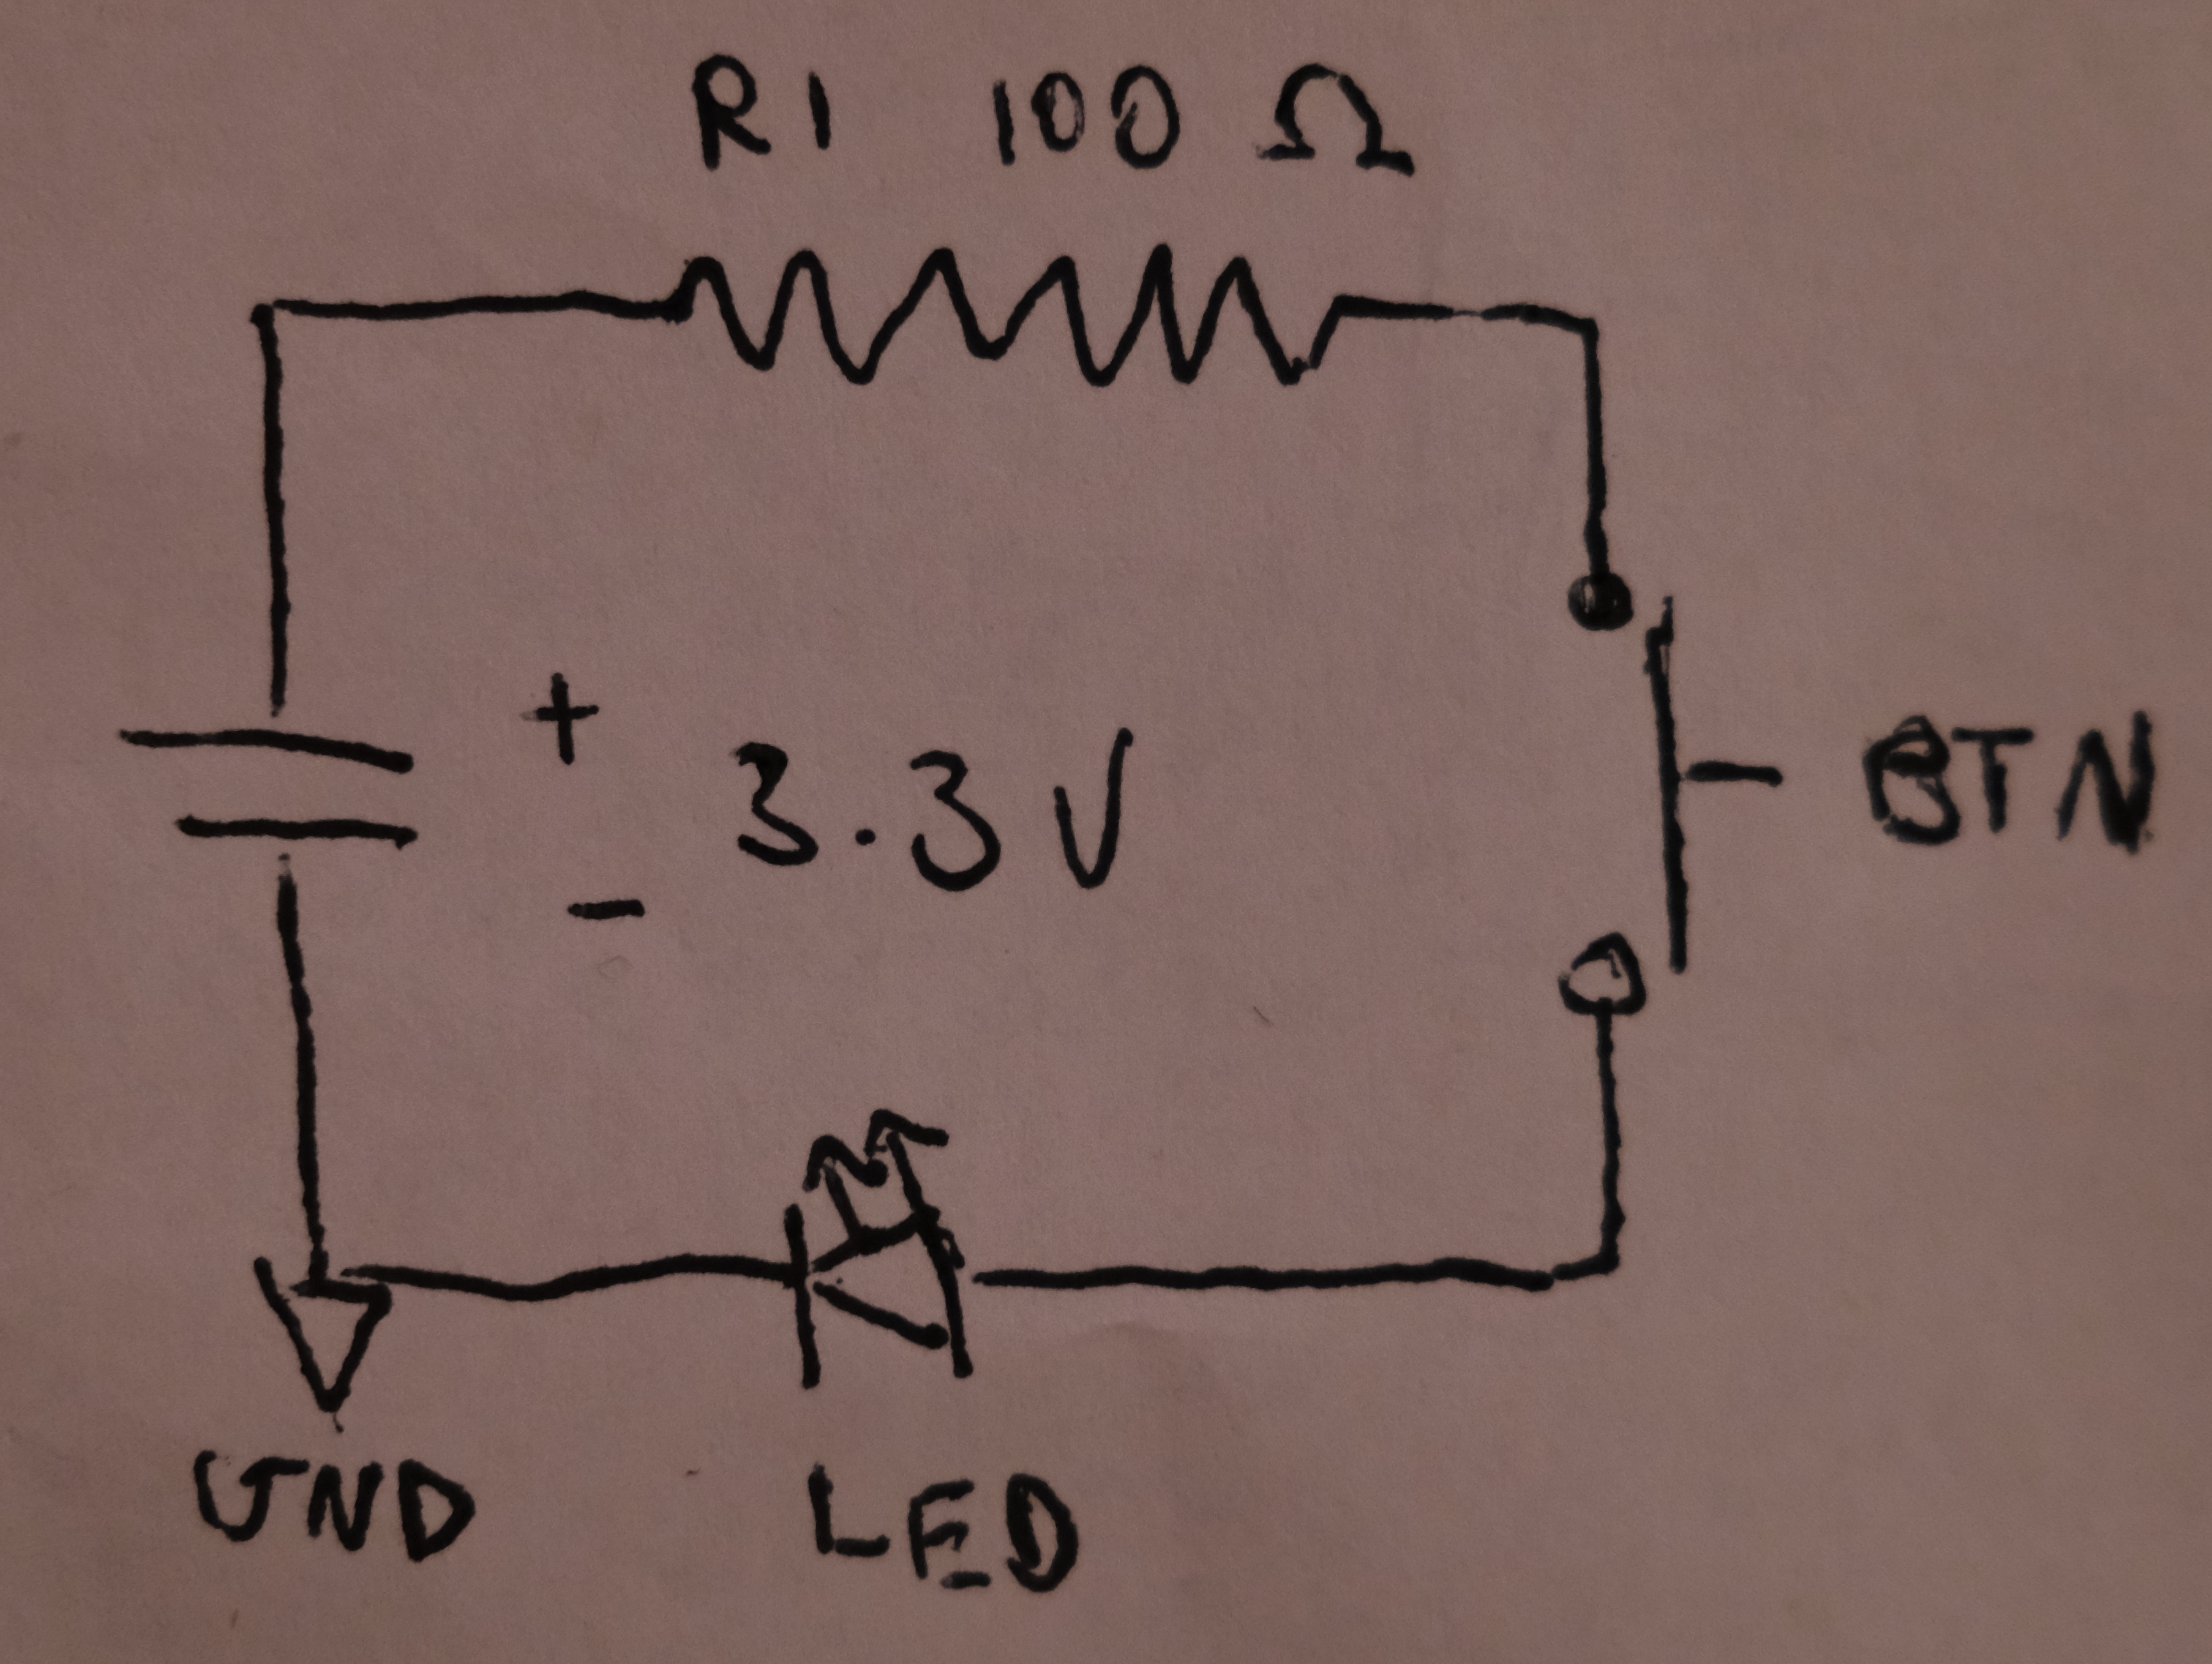 R1 100 Ω
+
3.3V
-
BTN
GND
LED